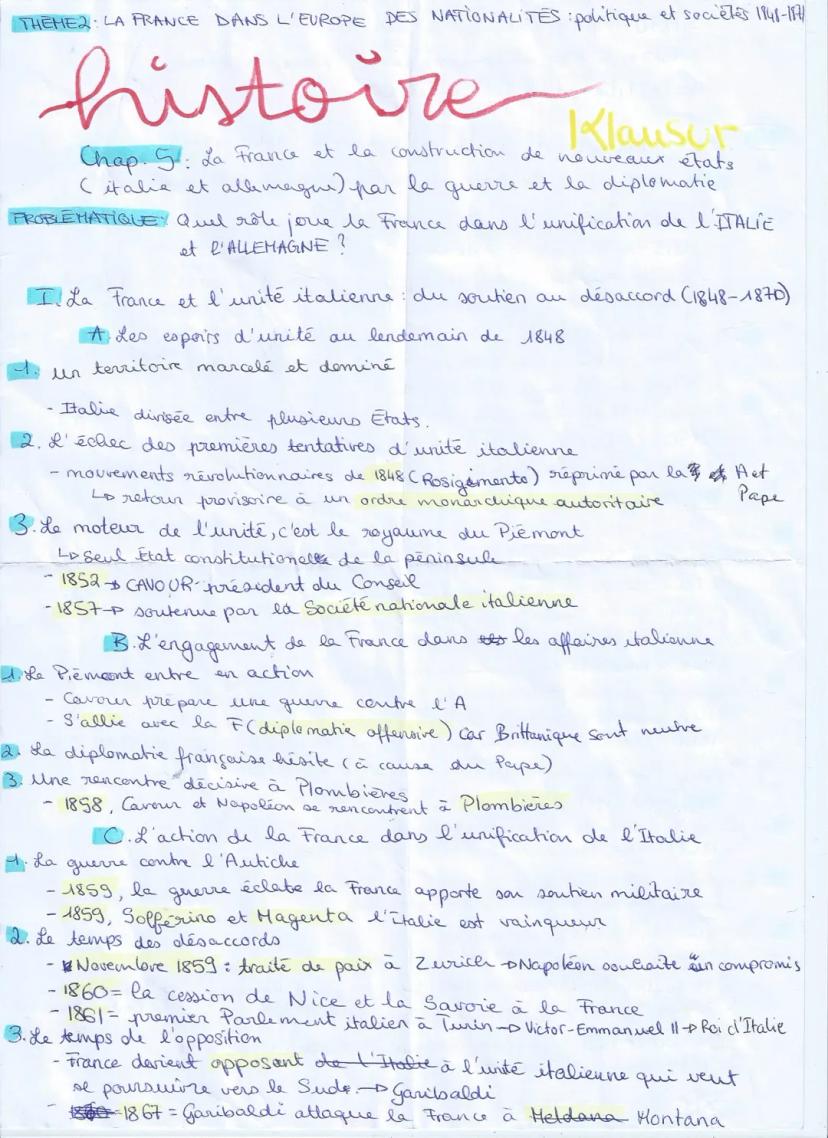 THÈME2: LA FRANCE DANS L'EUROPE DES NATIONALITÉS : politique et sociétés 1848-1871
histoire
Klausur
Chap. 5 : La France et la construction de nouveaux états
(italie et allemagne) par la guerre et la diplomatie
PROBLÉMATIQUE: Quel rôle joue la France dans l'unification de l'ITALIE
et l'ALLEMAGNE ?
I. La France et l'unité italienne : du soutien au désaccord (1848-1870)
A Les espoirs d'unité au lendemain de 1848
1. un territoire marcelé et dominé
- Italie divisée entre plusieurs États.
2. L'échec des premières tentatives d'unité italienne
- mouvements révolutionnaires de 1848 (Rosigimento) réprimé par la A et
Pape
↳ retour provisoire à un ordre monarchique autoritaire
3. Le moteur de l'unité, c'est le royaume du Piémont
↳ Seul État constitutionel de la péninsule
- 1852 → CAVOUR président du Conseil
- 1857 → soutenue par la Société nationale italienne
B. L'engagement de la France dans les affaires italienne
1. Le Piémont entre en action
- Cavour prépare une guerre contre l'A
- S'allie avec la F (diplomatie offensive) car Brittanique sont neutre
2. La diplomatie française hésite (à cause du Pape)
3. Une rencontre décisive à Plombières
- 1858, Cavour et Napoléon se rencontrent à Plombières
C. L'action de la France dans l'unification de l'Italie
1. La guerre contre l'Autiche
- 1859, la guerre éclate la France apporte son soutien militaire
- 1859, Solférino et Magenta l'Italie est vainqueur
2. Le temps des désaccords
- Novembre 1859 : traité de paix à Zurich → Napoléon souhaite un compromis
- 1860 = la cession de Nice et la Savoie à la France
- 1861 = premier Parlement italien à Turin → Victor-Emmanuel II → Roi d'Italie
3. Le temps de l'opposition
- France devient opposant de l'Italie à l'unité italienne qui veut
se poursuivre vers le Sude. → Garibaldi
- 1867 = Garibaldi attaque la France à Meldana Montana